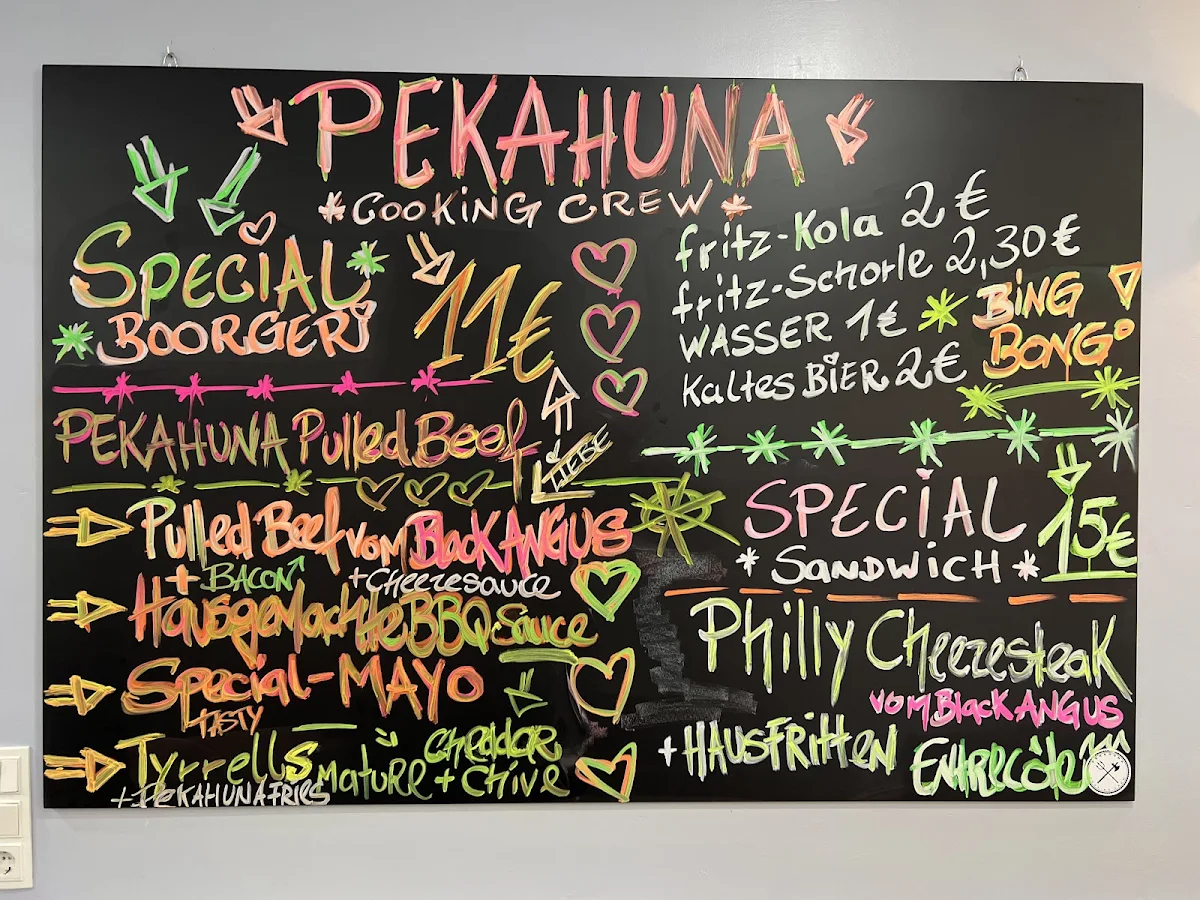 PEKAHUNA
*COOKING CREW*
SPECIAL
*BOORGER
11€
PEKAHUNA Pulled Beef
LIEBE
Pulled Beef vom Black ANGUS
+ BACON + Cheezesauce
Hausgemachte BBQ-Sauce
Special-MAYO
TASTY
Tyrrells mature Cheddar + Chive
+ PEKAHUNA FRIES
fritz-Kola 2€
fritz-Schorle 2,30€
WASSER 1€
Kaltes BIER 2€
BING
BONG
SPECIAL
*SANDWICH*
15€
Philly Cheezesteak
vom Black ANGUS
+ HAUSFRITTEN Entrecôte